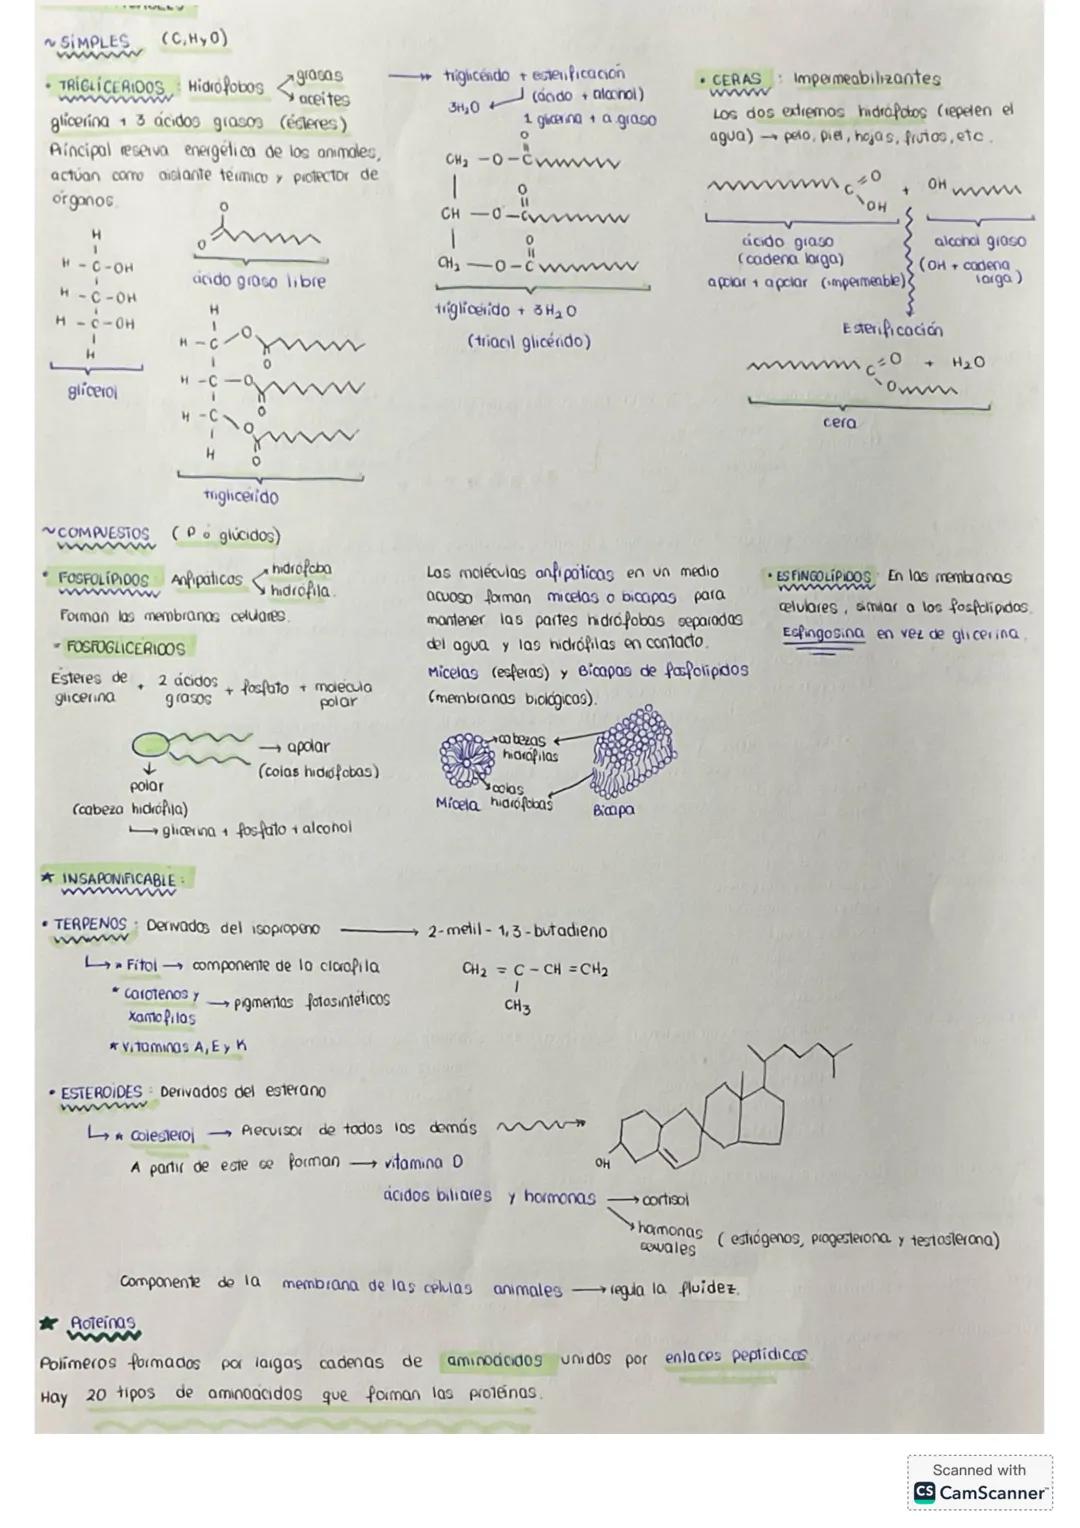 ~ SIMPLES (C, H y O)
• TRIGLICERIDOS : Hidrófobos
grasas
aceites
glicerina + 3 ácidos grasos (ésteres)
Principal reserva energética de los animales,
actúan como aislante térmico y protector de
órganos.
H
H - C - OH
H - C - OH
H - C - OH
H
glicerol
O
O
ácido graso libre
H
H - C - O
O
H - C - O
O
H - C - O
H O
triglicérido
triglicérido + esterificación
3H2O (ácido + alcohol)
1 glicerina + a.graso
O
CH2 - O - C
O
CH - O - C
O
CH2 - O - C
triglicérido + 3H2O
(triacil glicérido)
• CERAS : Impermeabilizantes
Los dos extremos hidrófobos (repelen el
agua) → pelo, piel, hojas, frutos, etc.
C = O OH + OH
ácido graso
(cadena larga)
alcohol graso
(OH + cadena larga)
apolar + apolar (impermeable)
Esterificación
C = O O + H2O
cera
~ COMPUESTOS (P o glúcidos)
• FOSFOLÍPIDOS Anfipáticos
hidrófoba
hidrófila.
Forman las membranas celulares.
- FOSFOGLICERIDOS
Esteres de glicerina + 2 ácidos grasos + fosfato + molécula polar
→ apolar
(colas hidrófobas)
polar
(cabeza hidrófila)
→ glicerina + fosfato + alcohol
Las moléculas anfipáticas en un medio
acuoso forman micelas o bicapas para
mantener las partes hidrófobas separadas
del agua y las hidrófilas en contacto.
Micelas (esferas) y Bicapas de fosfolípidos
(membranas biológicas).
cabezas hidrófilas
colas hidrófobas
Micela
Bicapa
• ESFINGOLÍPIDOS En las membranas
celulares, similar a los fosfolípidos.
Esfingosina en vez de glicerina.
★ INSAPONIFICABLE :
• TERPENOS : Derivados del isopropeno → 2-metil-1,3-butadieno
* Fitol → componente de la clorofila
CH2 = C - CH = CH2
CH3
* Carotenos y xantofilas → pigmentos fotosintéticos
* Vitaminas A, E y K
• ESTEROIDES : Derivados del esterano
* Colesterol → Precursor de todos los demás
OH
A partir de este se forman → vitamina D
ácidos biliares y hormonas → cortisol
hormonas sexuales (estrógenos, progesterona y testosterona)
Componente de la membrana de las células animales → regula la fluidez.
★ Proteínas
Polímeros formados por largas cadenas de aminoácidos unidos por enlaces peptídicos
Hay 20 tipos de aminoácidos que forman las proteínas.
Scanned with
CS CamScanner